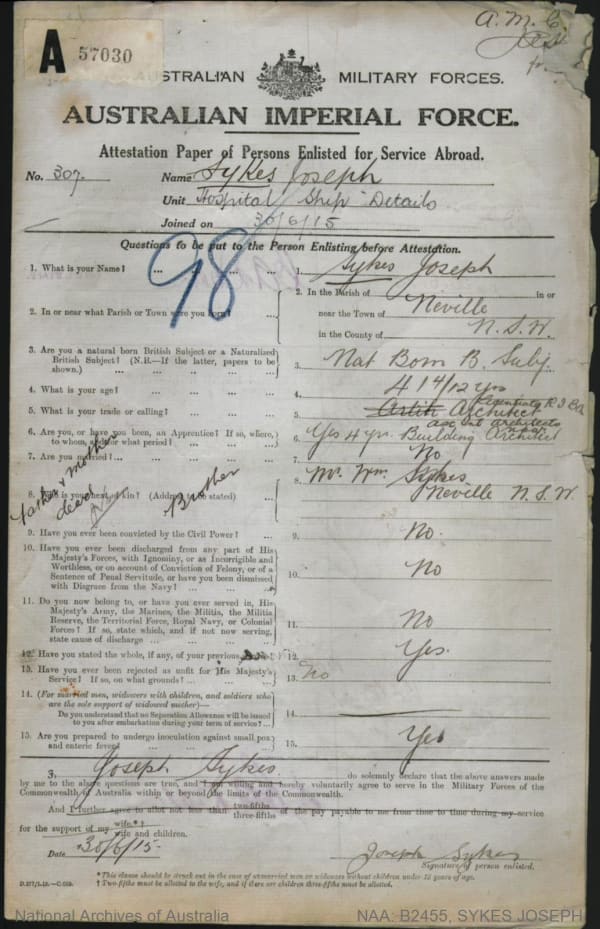 A 57030
A. M. C.
AUSTRALIAN MILITARY FORCES.
AUSTRALIAN IMPERIAL FORCE.
Attestation Paper of Persons Enlisted for Service Abroad.
No. 307. Name Sykes Joseph
Unit Hospital Ship Details
Joined on 30/6/15
Questions to be put to the Person Enlisting before Attestation.
98
1. What is your Name? ... 1. Sykes Joseph
2. In or near what Parish or Town were you born? ... 2. In the Parish of in or
near the Town of Neville
in the County of N.S.W.
3. Are you a natural born British Subject or a Naturalized
British Subject? (N.B.—If the latter, papers to be
shown.) 3. Nat Born B. Subj.
4. What is your age? ... 4. 41 4/12 yrs
5. What is your trade or calling? ... 5. Architect
6. Are you, or have you been, an Apprentice? If so, where,
to whom, and for what period? ... 6. Yes 4 yrs. Building Architect
7. Are you married? ... 7. No
8. Who is your next of kin? (Address to be stated) 8. Mr. Wm. Sykes
Neville N.S.W.
Father & mother
dead
Brother
9. Have you ever been convicted by the Civil Power? ... 9. No.
10. Have you ever been discharged from any part of His
Majesty's Forces, with Ignominy, or as Incorrigible and
Worthless, or on account of Conviction of Felony, or of a
Sentence of Penal Servitude, or have you been dismissed
with Disgrace from the Navy? ... 10. No
11. Do you now belong to, or have you ever served in, His
Majesty's Army, the Marines, the Militia, the Militia
Reserve, the Territorial Force, Royal Navy, or Colonial
Forces? If so, state which, and if not now serving,
state cause of discharge ... 11. No
12. Have you stated the whole, if any, of your previous 12. Yes.
13. Have you ever been rejected as unfit for His Majesty's
Service? If so, on what grounds? ... 13. No
14. (For married men, widowers with children, and soldiers who
are the sole support of widowed mother)—
Do you understand that no Separation Allowance will be issued
to you after embarkation during your term of service? ... 14.
15. Are you prepared to undergo inoculation against small pox
and enteric fever? 15. Yes
I, Joseph Sykes do solemnly declare that the above answers made
by me to the above questions are true, and I am willing and hereby voluntarily agree to serve in the Military Forces of the
Commonwealth of Australia within or beyond the limits of the Commonwealth.
And I further agree to allot not less than two-fifths three-fifths of the pay payable to me from time to time during my service
for the support of my wife.*† wife and children.
Date 30/6/15. Joseph Sykes
Signature of person enlisted.
* This clause should be struck out in the case of unmarried men or widowers without children under 18 years of age.
† Two-fifths must be allotted to the wife, and if there are children three-fifths must be allotted.
National Archives of Australia NAA: B2455, SYKES JOSEPH